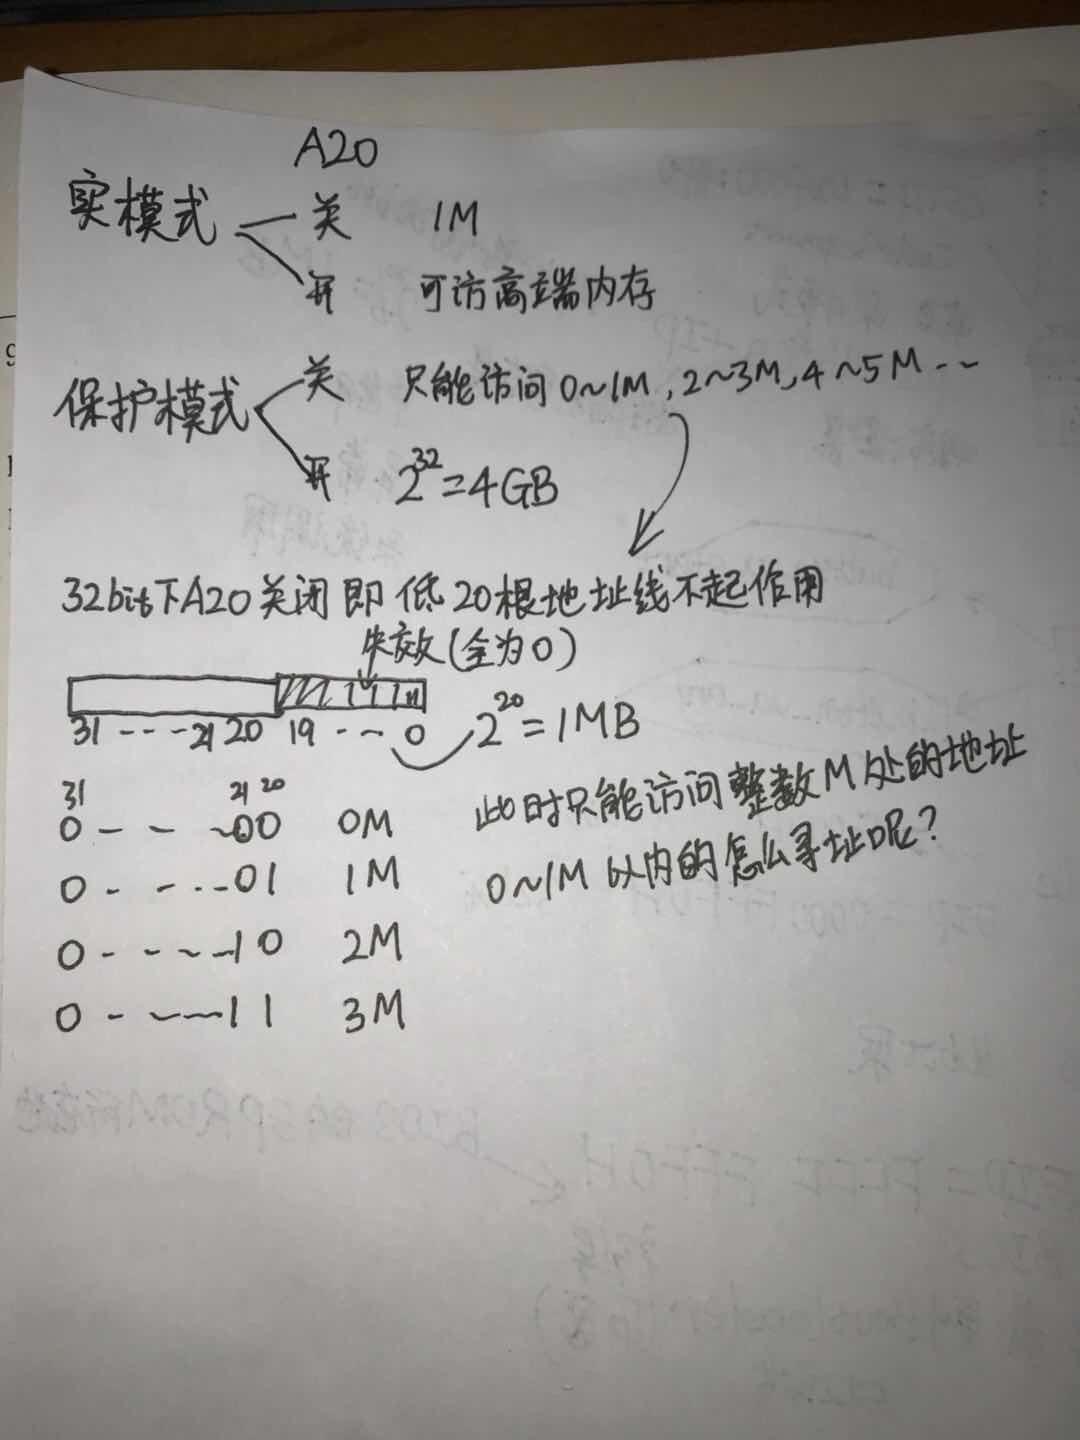 A20
实模式 关 1M
开 可访高端内存
保护模式 关 只能访问0~1M,2~3M,4~5M--
开 2^32=4GB
32bit下A20关闭即低20根地址线不起作用
失效(全为0)
31 ---- 21 20 19 -- 0 2^20=1MB
31 21 20
0 - - -00 0M
0 - -..01 1M
0 - - - -10 2M
0 - ---11 3M
此时只能访问整数M处的地址
0~1M以内的怎么寻址呢?